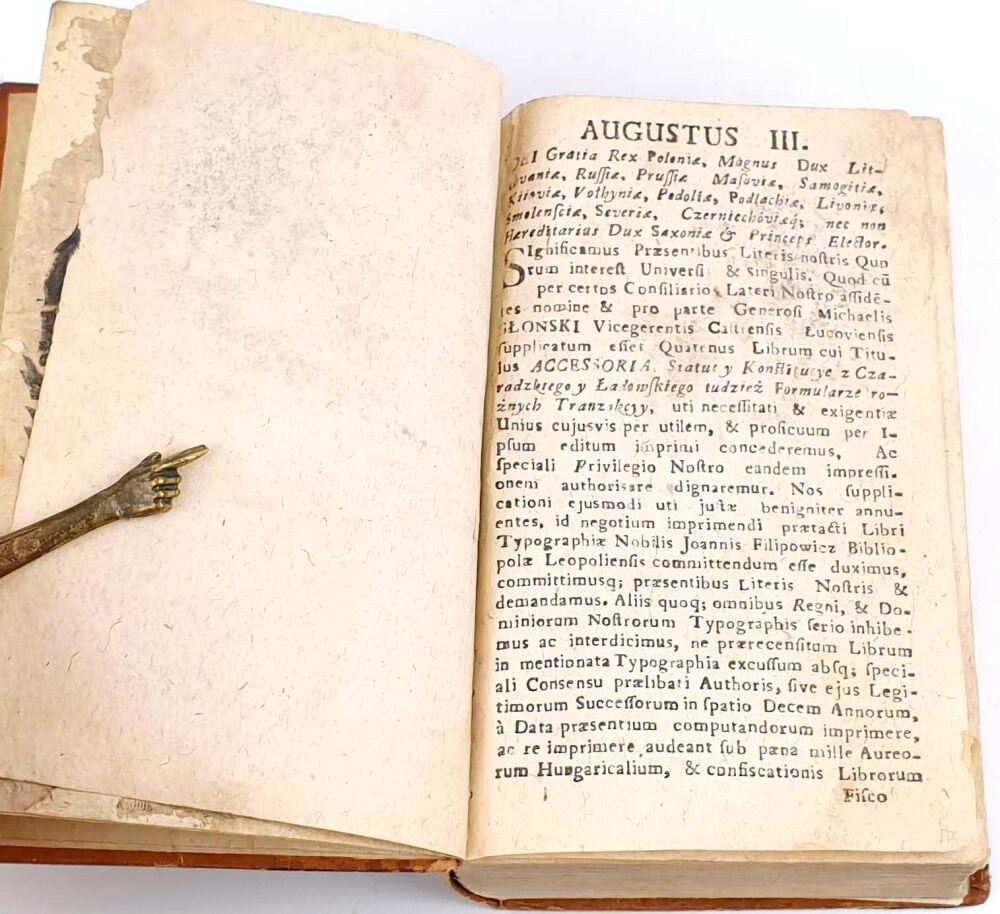 AUGUSTUS III.
DEI Gratia Rex Poloniæ, Magnus Dux Lit-
hvaniæ, Ruſſiæ, Pruſſiæ Maſoviæ, Samogitiæ,
Kijoviæ, Volhyniæ, Podoliæ, Podlachiæ, Livoniæ,
Smolenſciæ, Severiæ, Czerniechoviæq; nec non
Hæreditarius Dux Saxoniæ & Princeps Elector.
SIgnificamus Præsentibus Literis noſtris Quo
rum intereſt Univerſi & Singulis. Quod cũ
per certos Conſiliarios Lateri Noſtro aſſidē-
tes nomine & pro parte Generoſi Michaelis
GŁONSKI Vicegerentis Caſtrenſis Łucovienſis
ſupplicatum eſſet Quatenus Librum cui Titu-
lus ACCESSORIA. Statut y Konſtitucye z Cza-
radzkiego y Ładowſkiego tudzież Formularze ro-
żnych Tranzakcyy, uti neceſſitati & exigentiæ
Unius cujusvis per utilem, & proficuum per I-
pſum editum imprimi concederemus, Ac
ſpeciali Privilegio Noſtro eandem impreſſi.
onem authorisare dignaremur. Nos ſuppli-
cationi ejusmodi uti juſtæ benigniter annu-
entes, id negotium imprimendi prætacti Libri
Typographiæ Nobilis Joannis Filipowicz Biblio-
polæ Leopolienſis committendum eſſe duximus,
committimusq; præsentibus Literis Noſtris &
demandamus. Aliis quoq; omnibus Regni, & Do-
miniorum Noſtrorum Typographis ſerio inhibe-
mus ac interdicimus, ne prærecenſitum Librum
in mentionata Typographia excuſſum absq; ſpeci-
ali Consensu prælibati Authoris, ſive ejus Legi-
timorum Succeſſorum in ſpatio Decem Annorum,
à Data præsentium computandorum imprimere,
ac re imprimere audeant ſub pæna mille Aureo-
rum Hungaricalium, & confiscationis Librorum
Fiſco